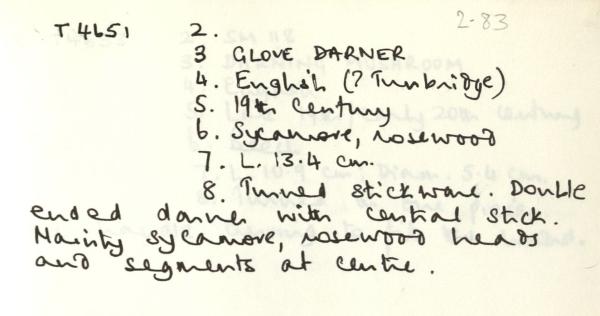 2-83
T4651 2.
3 GLOVE DARNER
4. English (? Tunbridge)
5. 19th Century
6. Sycamore, rosewood
7. L. 13.4 cm.
8. Turned stickware. Double
ended darner with central stick.
Mainly sycamore, rosewood heads
and segments at centre.